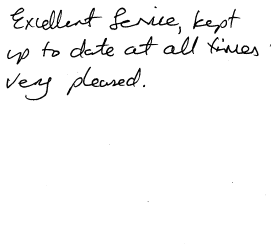 Excellent Service, kept
up to date at all times
very pleased.